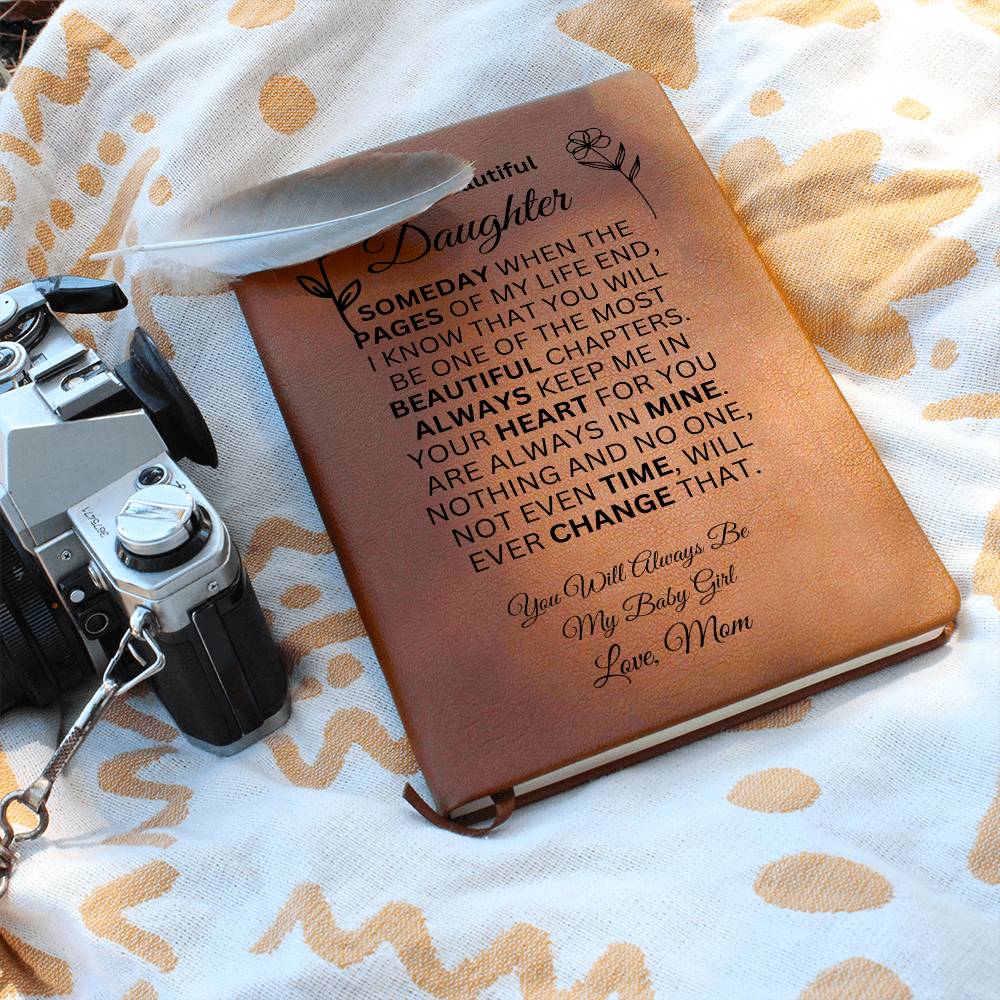 autiful
Daughter
SOMEDAY WHEN THE
PAGES OF MY LIFE END,
I KNOW THAT YOU WILL
BE ONE OF THE MOST
BEAUTIFUL CHAPTERS.
ALWAYS KEEP ME IN
YOUR HEART FOR YOU
ARE ALWAYS IN MINE.
NOTHING AND NO ONE,
NOT EVEN TIME, WILL
EVER CHANGE THAT.
You Will Always Be
My Baby Girl
Love, Mom